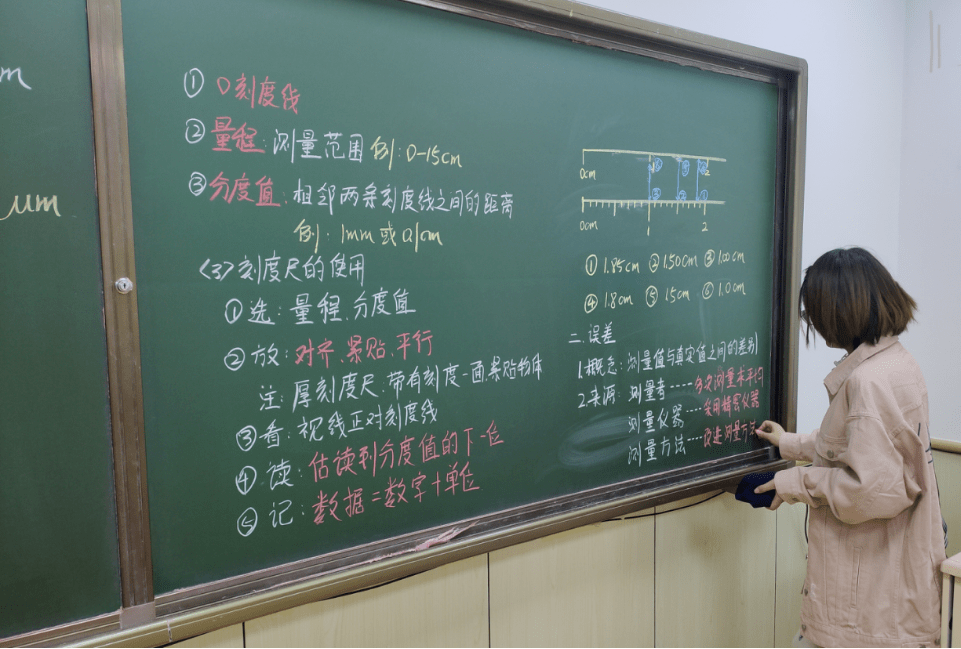 m
μm
① 0刻度线
② 量程：测量范围 例：0-15cm
③ 分度值：相邻两条刻度线之间的距离
例：1mm或0.1cm
<3>刻度尺的使用
① 选：量程、分度值
② 放：对齐、紧贴、平行
注：厚刻度尺，带有刻度一面，紧贴物体
③ 看：视线正对刻度线
④ 读：估读到分度值的下一位
⑤ 记：数据=数字+单位
0cm 2
0cm 1 2
① 1.85cm ② 1.50cm ③ 1.00cm
④ 1.8cm ⑤ 1.5cm ⑥ 1.0cm
二、误差
1.概念：测量值与真实值之间的差别
2.来源：测量者----多次测量求平均
测量仪器----采用精密仪器
测量方法----改进测量方法